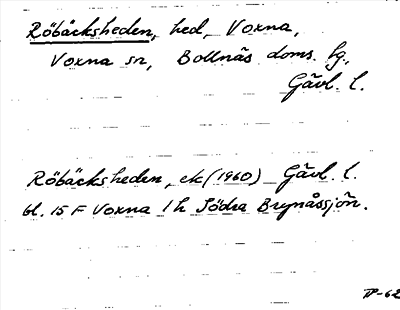 Röbäcksheden, hed, Voxna,
Voxna sn, Bollnäs doms. fg.,
Gävl. l.
Röbäcksheden, ek (1960) Gävl. l.
bl. 15 F Voxna 1 h Södra Brynåssjön.
TP-62